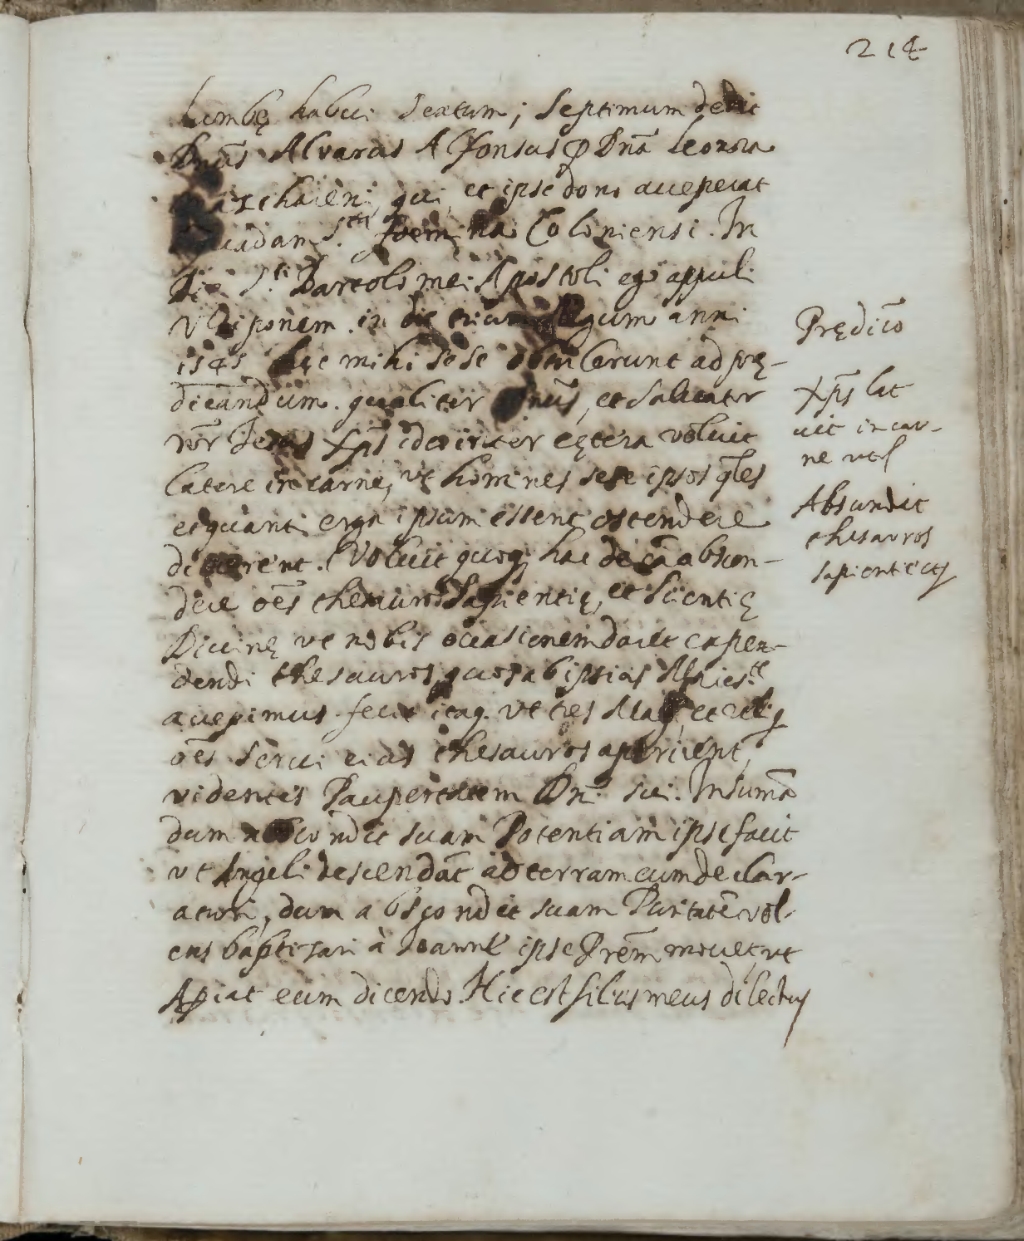 214
Lembę habui Sextum; Septimum dedit
Dnūs Alvarus Alfonsus p Dnā Leonora
qui et ipse dono acceperat
foemina Coloniensi. In
Die S.ti Bartolomei Apostoli ego appuli
Vlisiponem. in die trium Regum anni
1545 hęc mihi sese obtulerunt ad prę-
dicandum. qualiter Dnūs, et Saluator
nōr Jesus Xpūs idcirco inter cętera voluit
latere in carne, vt homines sese ipsos q̄les
et quanti erga ipsum essent ostendere
discerent. Voluit quoq; hac de cā abscon-
dere oēs thesauros Sapientię, et Scientię
Diuinę vt nobis occasionem daret expen-
dendi thesauros, quos ab ipsius Maies.te
accepimus. fecit itaq. vt tres Magi et reliq
oēs serui eius thesauros aperirent,
videntes Paupertatem Dn̄i sui. In sumā
dum abscondit suam Potentiam ipse facit
vt Angeli descendāt ad terram eum declar-
aturi, dum abscondit suam Puritatē vol-
ens baptizari à Joanne ipse Prēm mouet, vt
Apiat eum dicendo. Hic est filius meus dilectus
Prędicō
Xpūs lat
uit in car-
ne vt
Abscondit
thesauros
sapientię etc